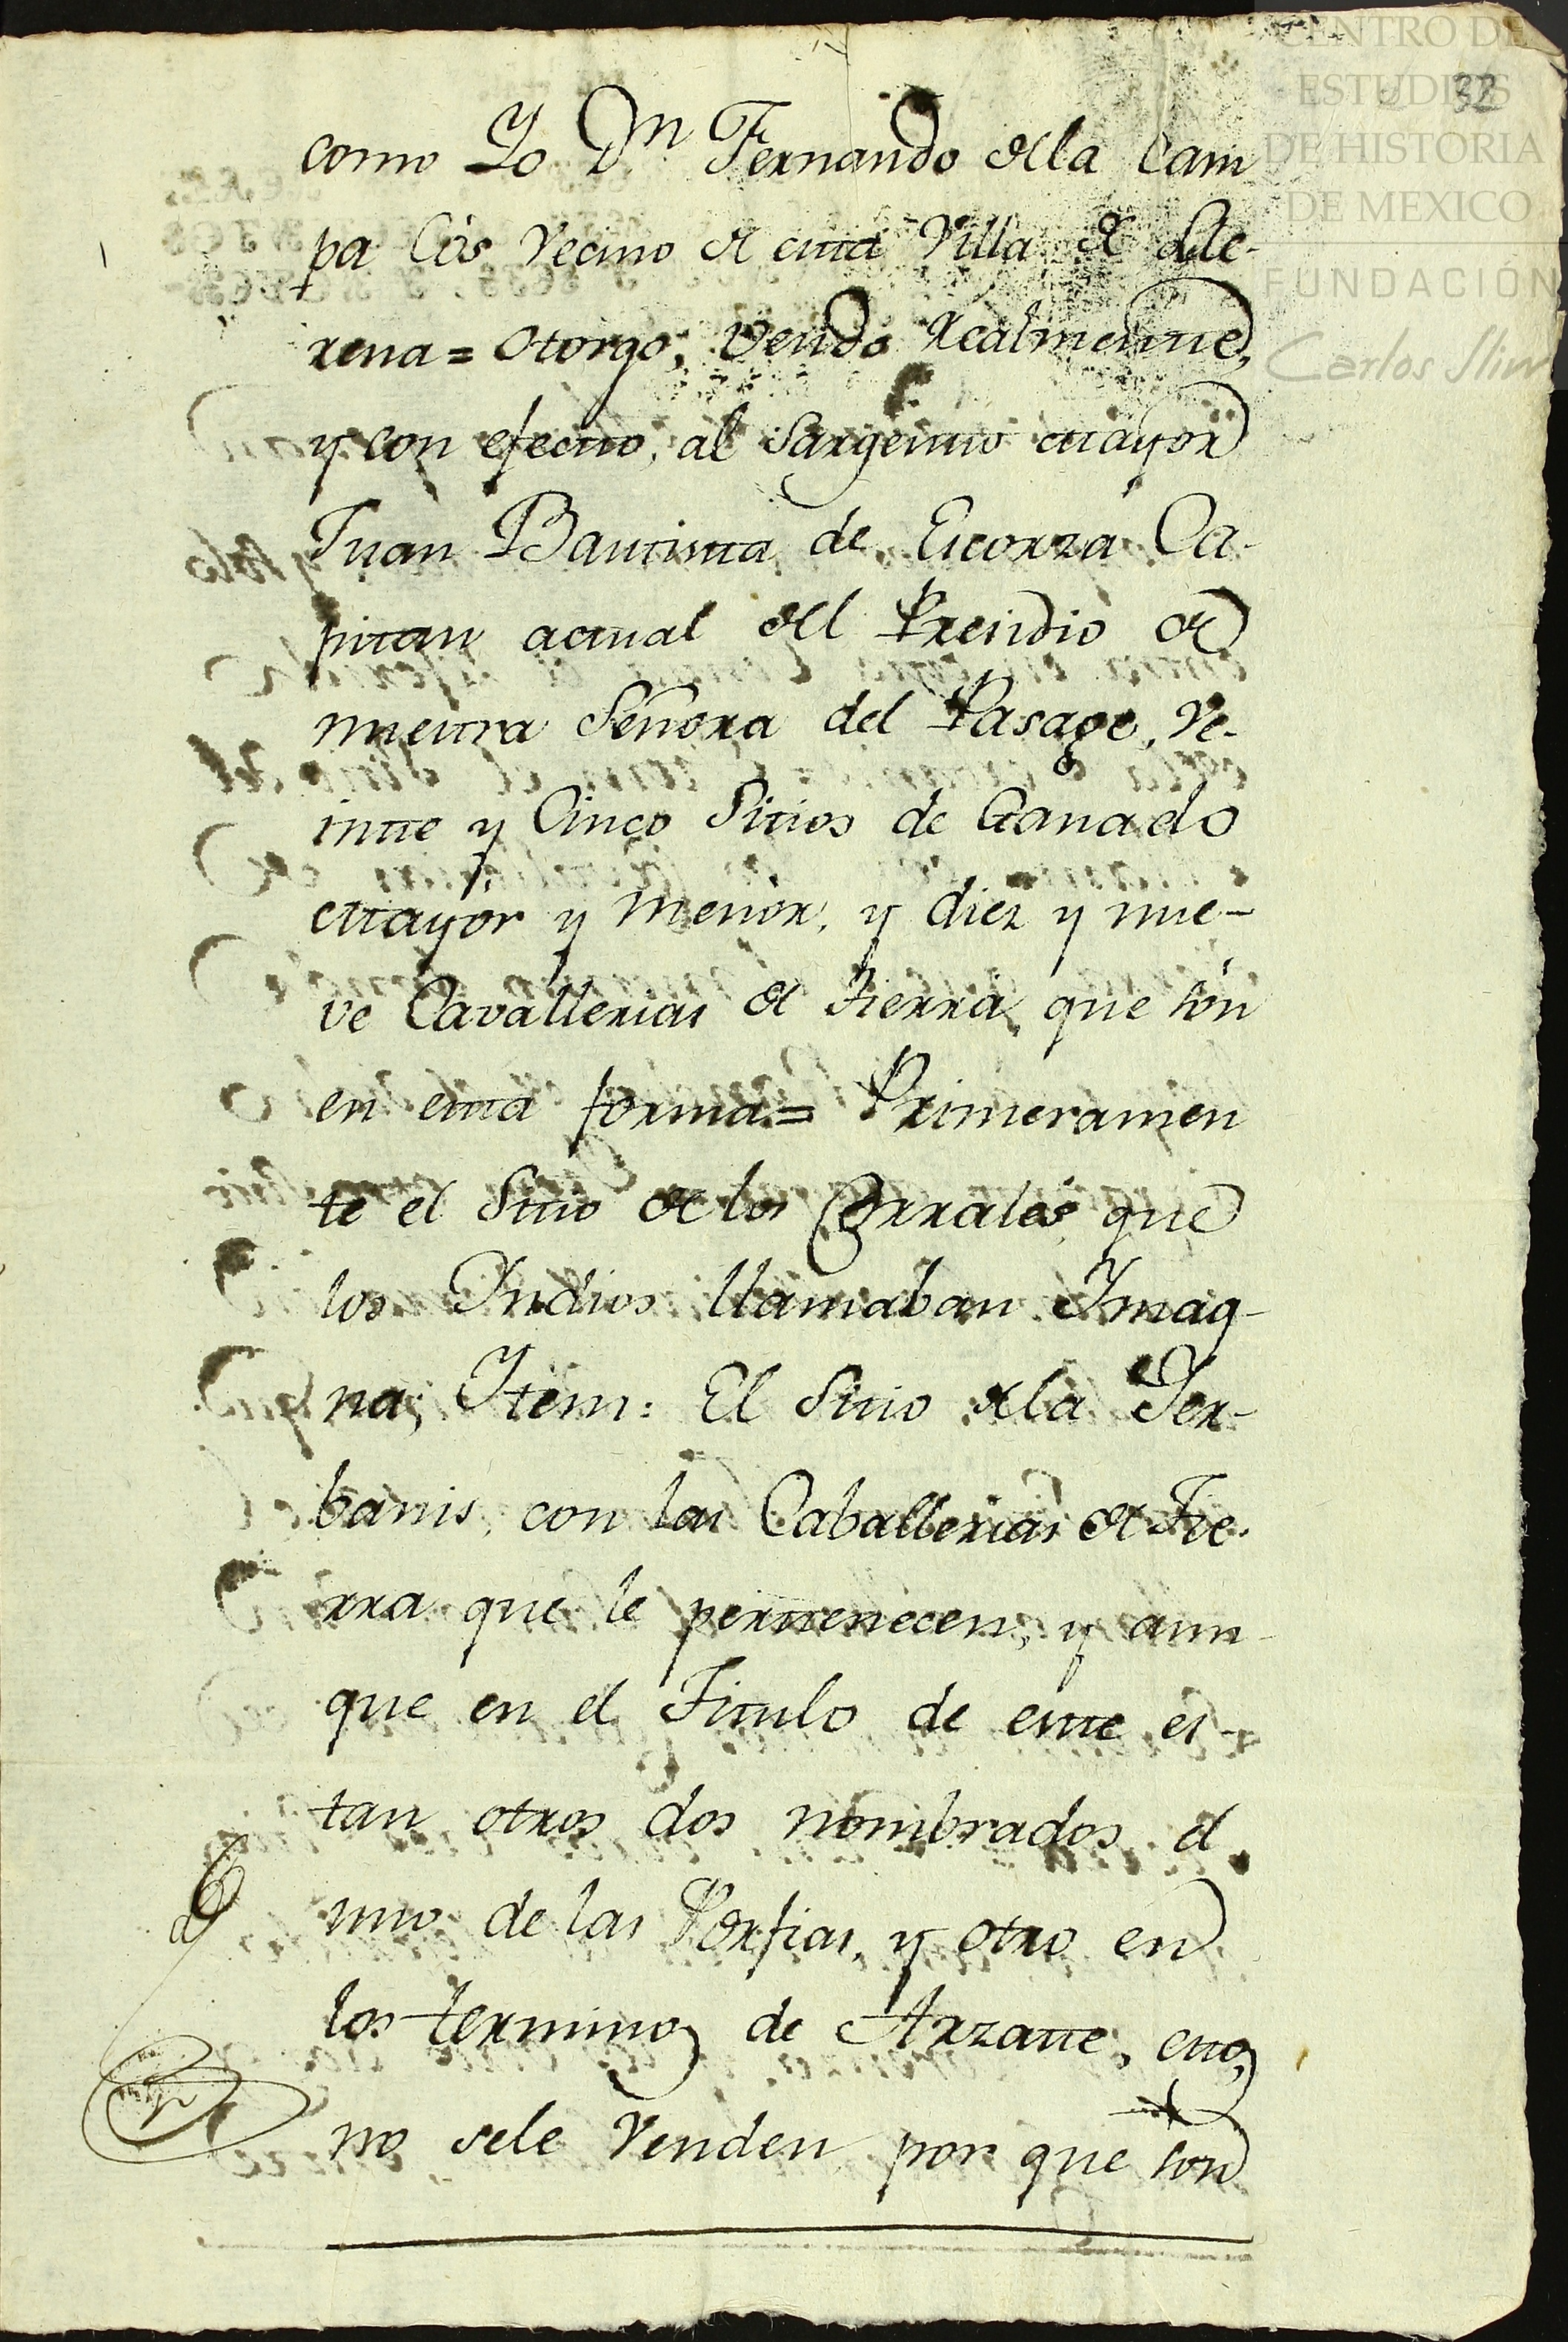 CENTRO DE
ESTUDIOS
DE HISTORIA
DE MEXICO
FUNDACIÓN
Carlos Slim
32
como Yo Dn. Fernando de la Cam
pa Cos Vecino de esta Villa de Lle-
rena = otorgo, vendo Realmente,
y con efecto, al Sargento mayor
Juan Bautista de Licorza Ca-
pitan actual del Presidio de
nuestra Señora del Pasage, Ve-
inte y Cinco Sitios de Ganado
mayor y menor, y diez y nue-
ve Cavallerias de Tierra, que son
en esta forma = Primeramen
te el Sitio de los Corrales, que
los Indios llamaban Imag-
na; Item: El Sitio de la Yer-
banis, con las Caballerias de Tie-
rra que le pertenecen, y aun-
que en el Titulo de este es-
tan otros dos nombrados el
uno de las Porfias, y otro en
los terminos de Arzate, estos
no sele Venden, por que son